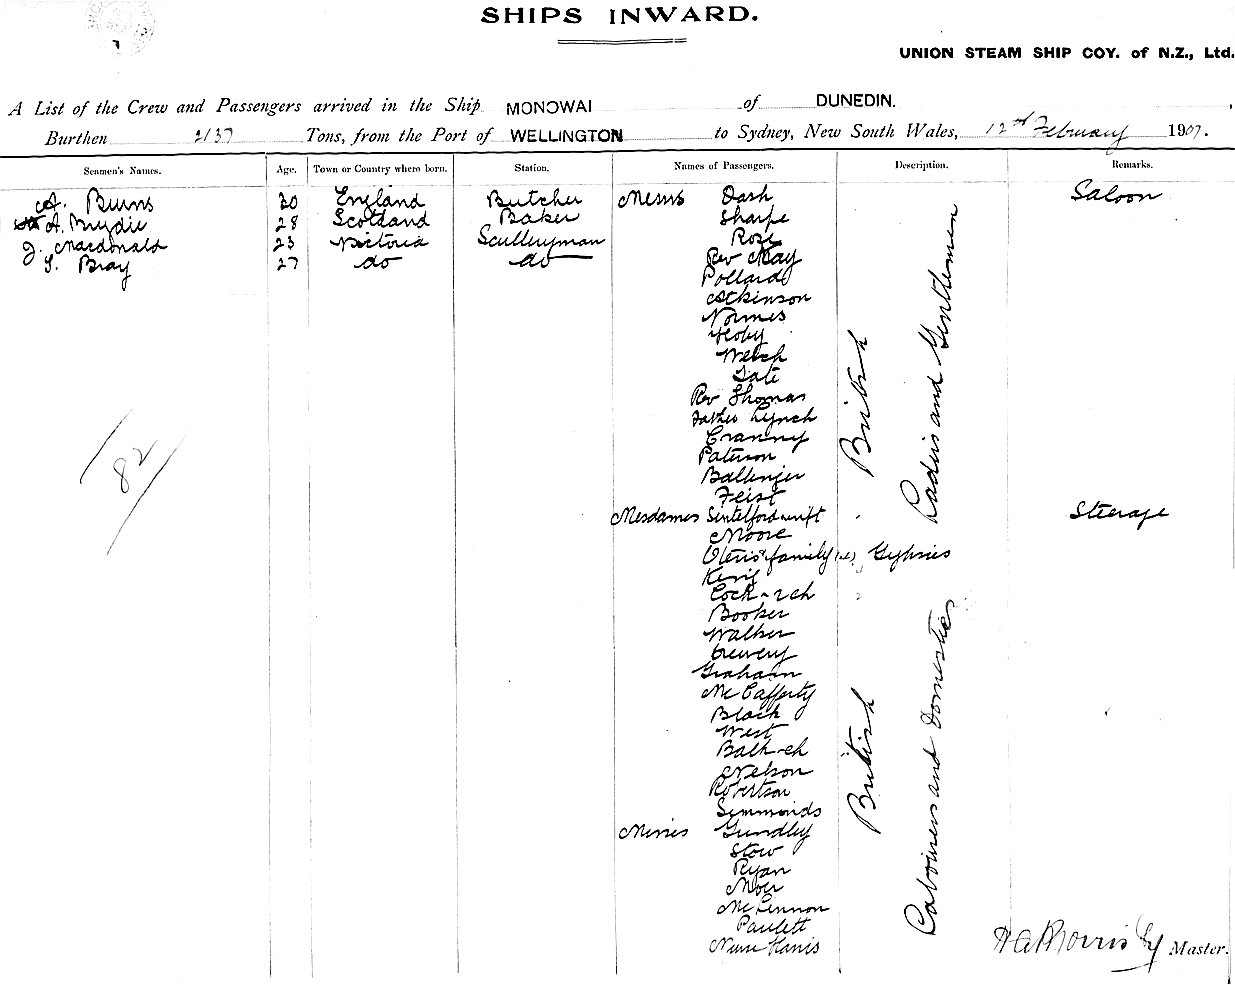 SHIPS INWARD.
UNION STEAM SHIP COY. of N.Z., Ltd.
A List of the Crew and Passengers arrived in the Ship MONOWAI of DUNEDIN.,
Burthen 2137 Tons, from the Port of WELLINGTON to Sydney, New South Wales, 12th February 1907.
Seamen's Names. Age. Town or Country where born. Station. Names of Passengers. Description. Remarks.
A. Burns 20 England Butcher Messrs Dash Saloon
A. Brydie 28 Scotland Baker Sharpe
J. Macdonald 23 Victoria Sculleryman Rose
Bray 27 do do Rev May
Pollard
Atkinson
Normes
Hoby
Welch
Tate
Rev Thomas
Father Lynch
Cranny
Paterson
Ballinger
Feist
British
Ladies and Gentlemen
82
Mesdames Steerage
Moore
family Gypsies
King
Booker
Walker
Brewery
Graham
McCafferty
Black
West
Nelson
Robertson
Simmonds
Misses Gundley
Stow
Ryan
Moer
McLennon
Paulett
Nurse Harris
British
Labourers and Domestics
Master.